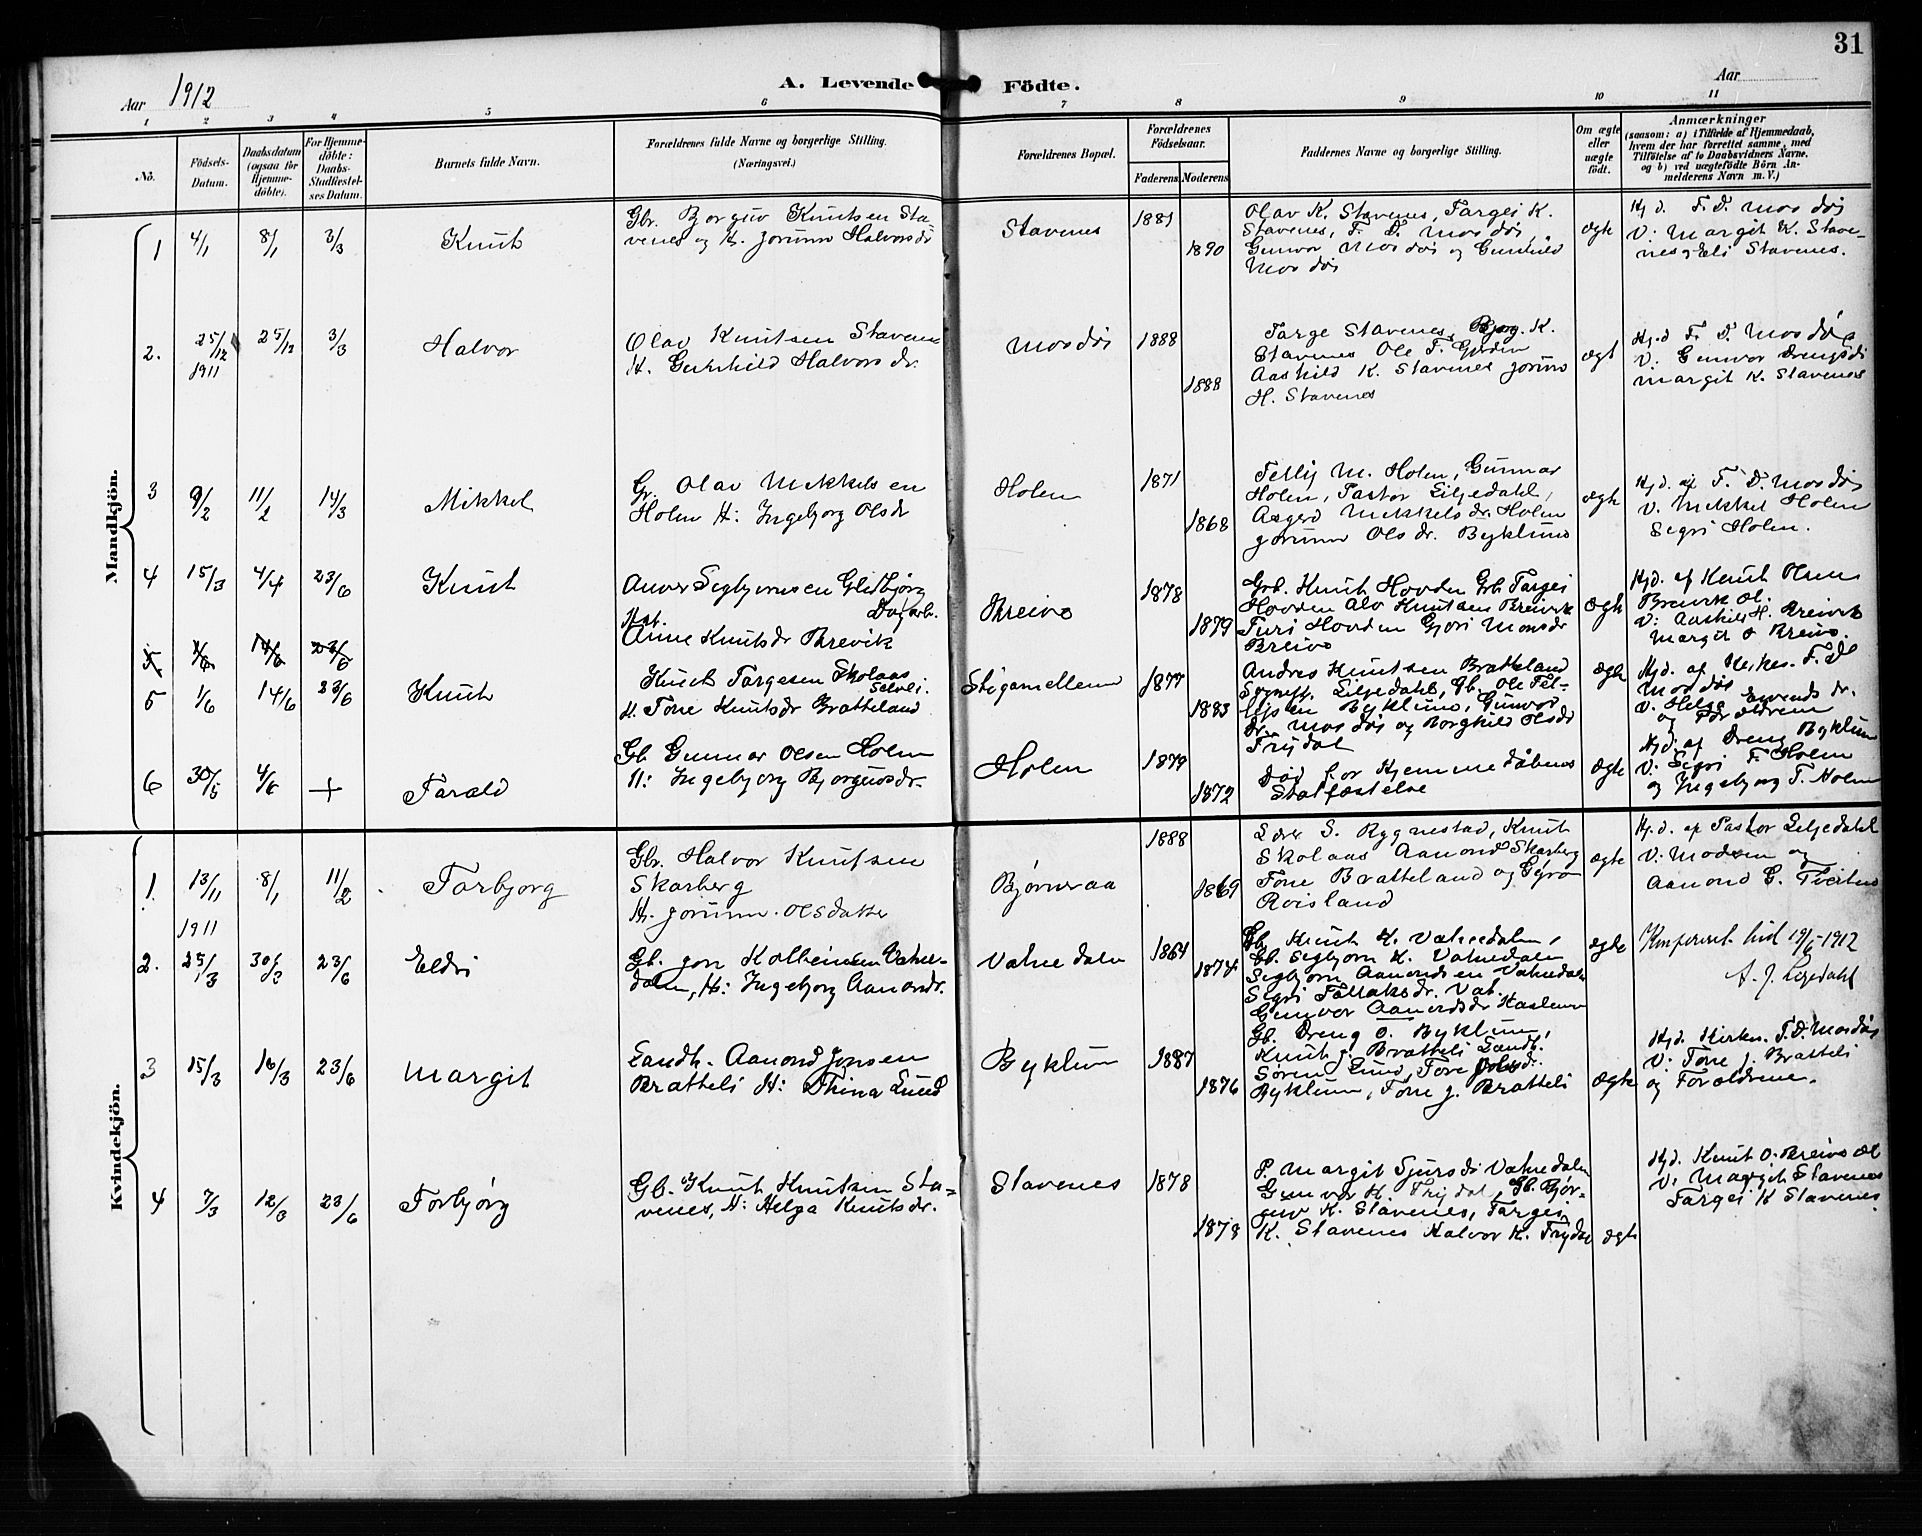 31
A. Levende Födte.
Aar 1912
Aar
1 2 3 4 5 6 7 8 9 10 11
No.
Födsels-Datum.
Daabsdatum (ogsaa for Hjemme-döbte).
For Hjemme-döbte: Daabs-Stadfæstel-ses Datum.
Barnets fulde Navn.
Forældrenes fulde Navne og borgerlige Stilling.
(Næringsvei.)
Forældrenes Bopæl.
Forældrenes Födselsaar.
Faderens. Moderens.
Faddernes Navne og borgerlige Stilling.
Om ægte eller uægte födt.
Anmærkninger
(saasom: a) i Tilfælde af Hjemmedaab,
hvem der har forrettet samme, med
Tilföielse af to Daabsvidners Navne,
og b) ved uægtefödte Börn An-
melderens Navn m. V.)
Mandkjön.
1 4/1 8/1 3/3 Knut
Gbr. Borguv Knutsen Sta-
venes og H. Jorunn Halvorsdr
Stavenes 1881 1890
Olav K. Stavenes, Targei K.
Stavenes, F. D. Mosdøi,
Gunvor Mosdøi og Gunhild
Mosdøi
ægte
Hj d. F. D. Mosdøi
V: Margit K. Stave-
nes og Eli Stavenes.
2. 25/12 1911 25/12 3/3 Halvor
Olav Knutsen Stavenes
H. Gunhild Halvorsdr.
Mosdøi 1888 1888
Targe Stavenes, Bjorg. K.
Stavenes Ole T.
Aashild K. Stavenes Jorunn
H. Stavenes
ægt
Hj.d F. D. Mosdøi
V: Gunvor Drengsdr
Margit K. Stavenes
3 9/2 11/2 14/3 Mikkel
Gr. Olav Mikkelsen
Holen H: Ingebjorg Olsdr
Holen 1871 1868
Tellij M. Holen, Gunnar
Holen, Pastor Liljedahl,
Asgerd Mikkelsdr. Holen
Jorunn Olsdr. Byklum
ægte
Hj d. af F. D. Mosdøi
V. Mikkel Holen
Sigri Holen.
4 15/3 4/4 23/6 Knut
Anver Sigbjornsen
Dagarb.
Anne Knutsdr Brevik
Breive 1878 1879
Grb. Knut Hovden Grb Targei
Hovden Alv Knutsen Breivik
Turi Hovden Gjori Monsdr
Breive
ægte
Hj d. af Knut Olsen
Breivik
V: Aashild H. Breivik
Margit O Breive.
5 1/6 14/6 23/6
5 1/6 14/6 23/6 Knut
Knut Targesen Skolaas
Selvei.
H. Tone Knutsdr Bratteland
Stigamellem 1877 1883
Andres Knutsen Bratteland
Sognepr. Liljedahl, Gb. Ole Tel-
lefsen Byklum, Gunvor
dr. Mosdøi og Borghild Olsdr
Trydal
ægte
Hj d. af Kirkes. F. D
Mosdøi
V. Helge Eyvends dr.
og Forældrene
6 30/5 4/6 + Tarald
Gb Gunnar Olsen Holen
H: Ingebjorg Bjorguvsdr.
Holen 1879 1872
Død før Hjemmedåbens
Statfæstelse
ægte
Hj d. af Dreng Byklum
V: Sigri T. Holen
og Ingebjorg T. Holen
Kvindekjön.
1. 13/11 1911 8/1 11/2 Torbjorg
Gbr. Halvor Knutsen
Skarberg
H. Jorunn Olsdatter
Bjørneraa 1888 1869
Lærer S. Rygnestad, Knut
Skolaas Aanond Skarberg
Tone Bratteland og Gyro
Roisland
ægte
Hj.d. af Pastor Liljedahl
V: Moderen og
Aanond G. Tveitene
2. 25/3 30/3 23/6 Eldri
Gb. Jon Kolbeinsen Vatne-
dalen, H: Ingebjorg Aanonds.
Vatnedalen 1864 1874
Gb. Knut K. Vatnedalen,
Gb. Sigbjorn K. Vatnedalen
Sigbjorn Aanondsen Vatnedalen
Sigri Tallaksdr. Vat.
Gunvor Aanondsdr
ægte
Konfereret hid 19/6-1912
A. J. Liljedahl
3 15/3 16/3 23/6 Margit
Landh. Aanond Jonsen
Bratteli H: Lund
Byklum 1887 1876
Gb. Dreng O. Byklum,
Knut J. Bratteli Landh.
Søren Lund, Tore
Byklum, Tone J. Bratteli
ægte
Hj d. Kirkes. F. D. Mosdøi
V: Tone J. Bratteli
og Foraldrene.
4 7/3 12/3 23/6 Torbjørg
Gb. Knut Knutsen Sta-
venes, H: Helga Knutsdr.
Stavenes 1878 1878
P. Margit Sjursdr Vatnedalen
Gunvor H. Trydal, Gb. Bjør-
guv K. Stavenes, Targei
K. Stavenes Halvor K. Trydal
ægte
Hj d. Knut O. Breive
V: Margit Stavenes
Targei K Stavenes.